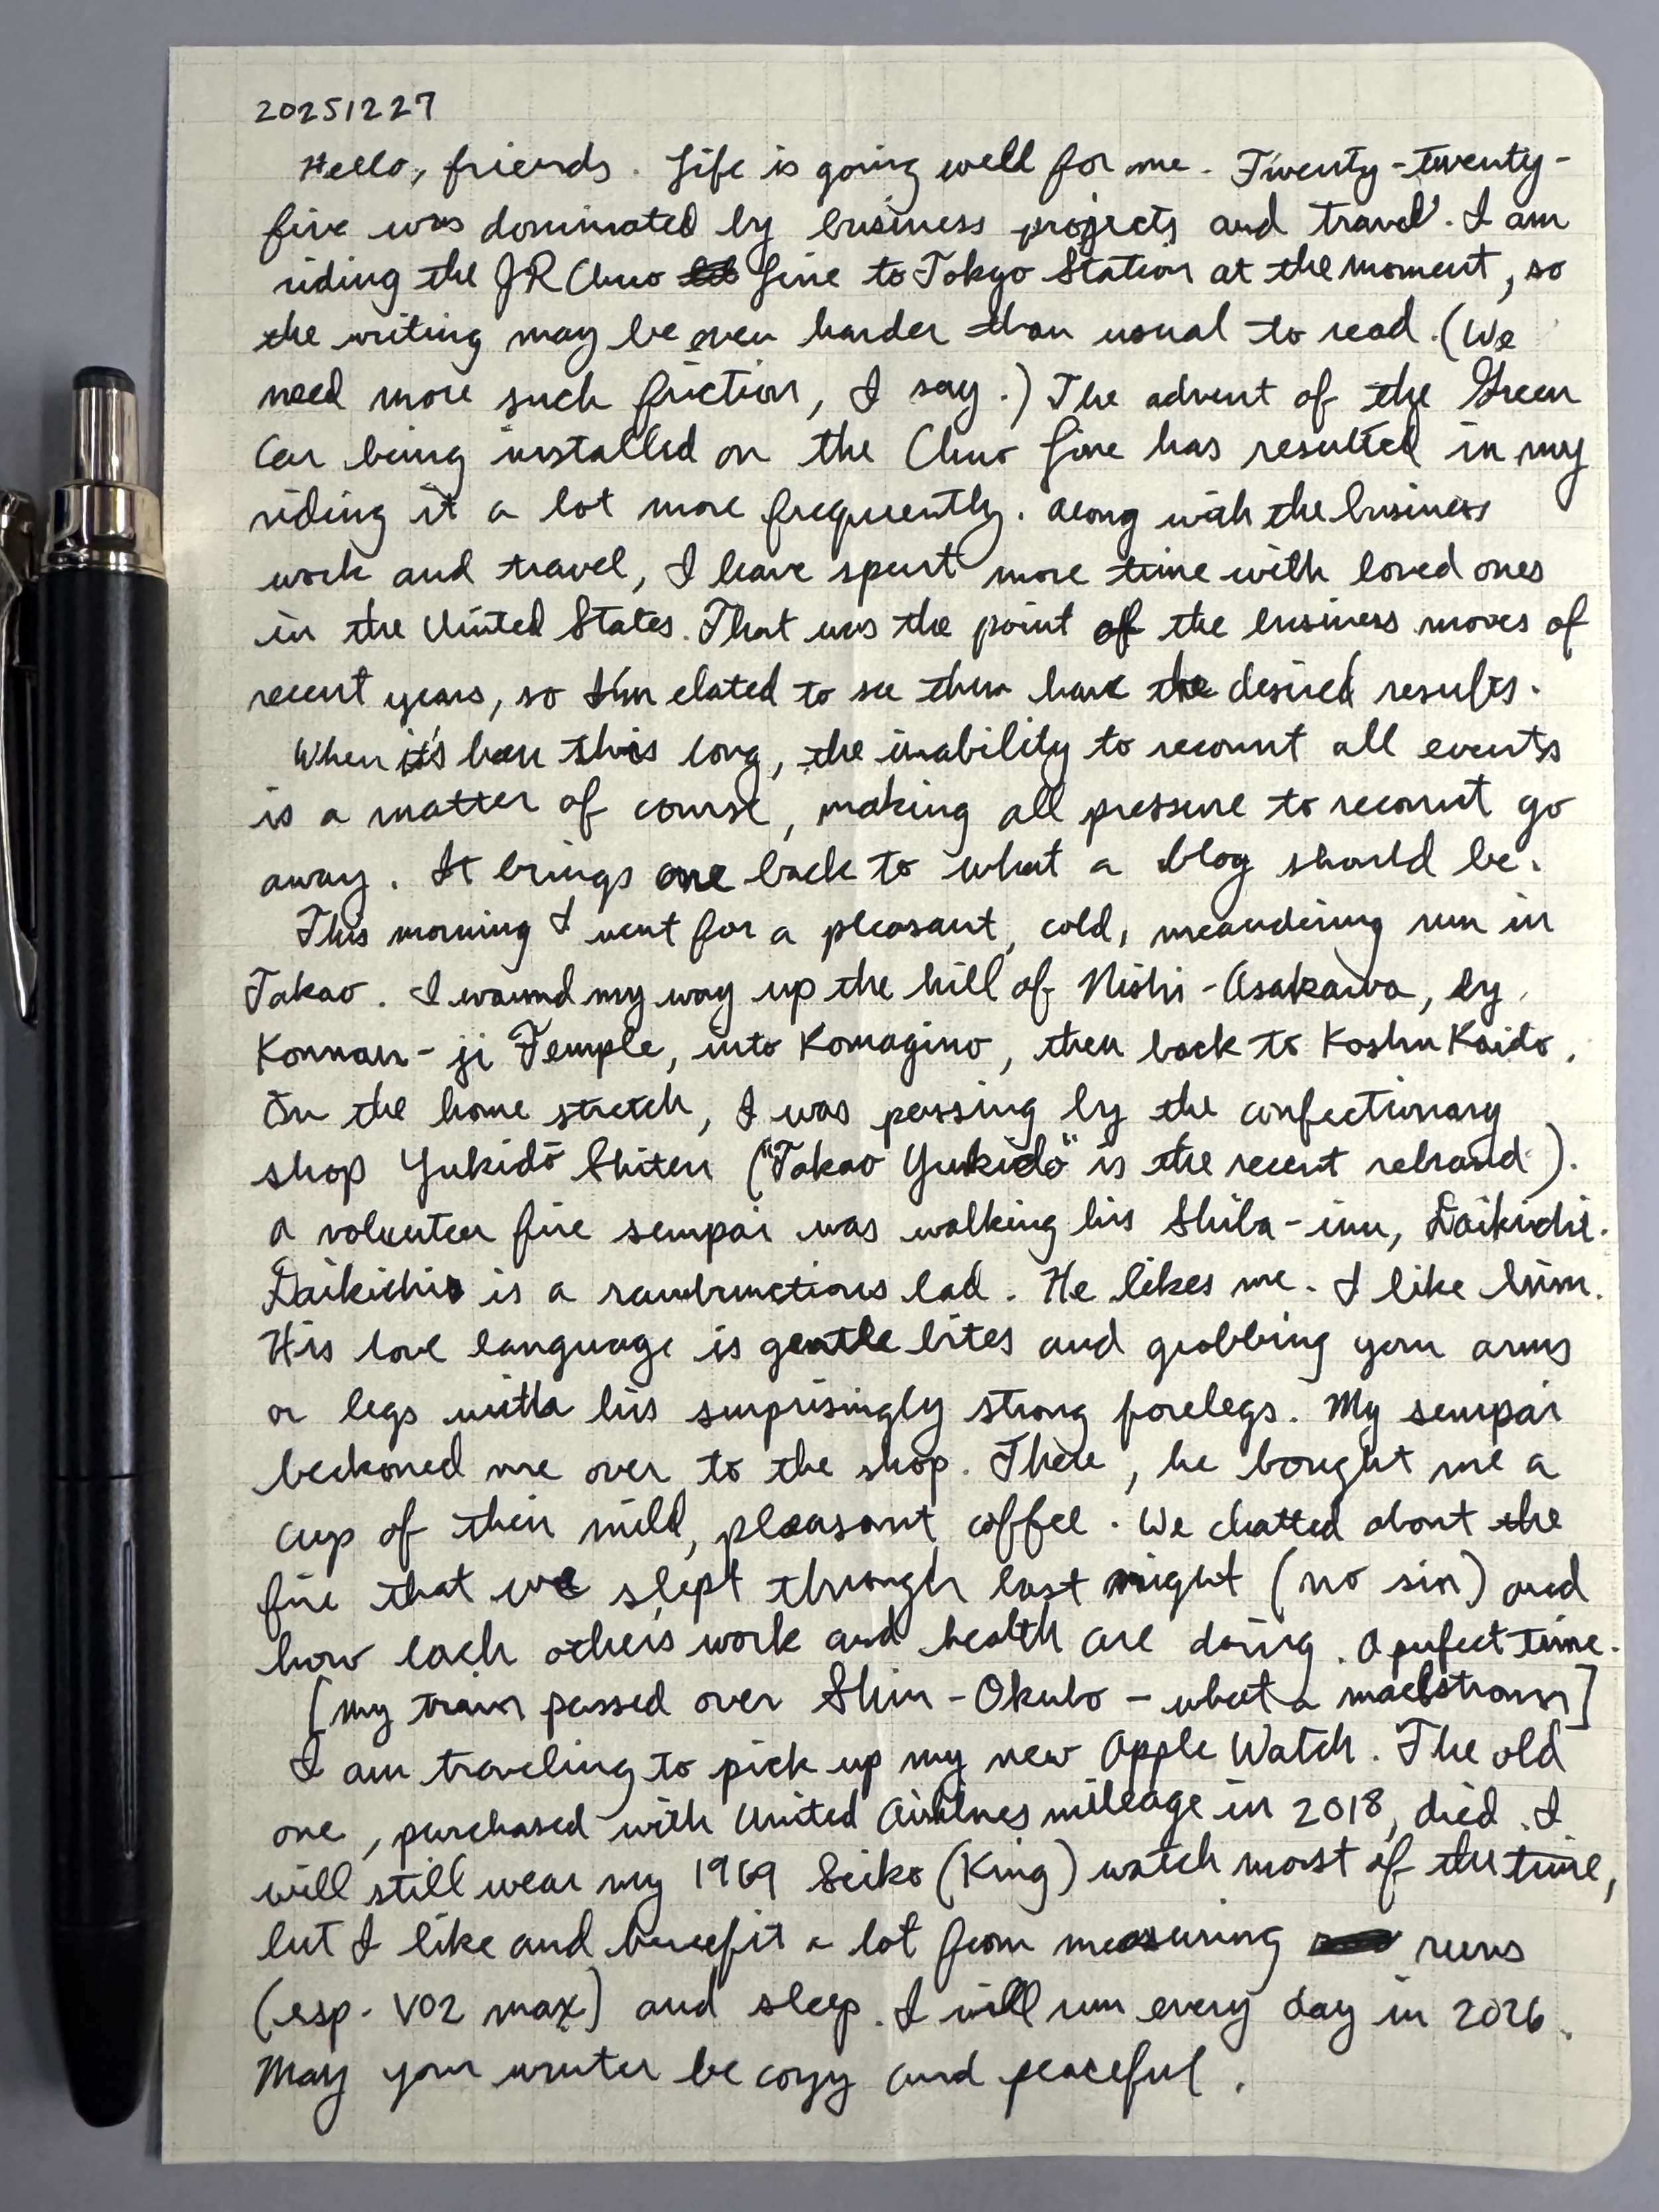 20251227
Hello, friends. Life is going well for me. Twenty-twenty-
five was dominated by business projects and travel. I am
riding the JR Chuo Line to Tokyo Station at the moment, so
the writing may be even harder than usual to read. (We
need more such friction, I say.) The advent of the Green
Car being installed on the Chuo Line has resulted in my
riding it a lot more frequently. Along with the business
work and travel, I have spent more time with loved ones
in the United States. That was the point of the business moves of
recent years, so I'm elated to see them have the desired results.
When it's been this long, the inability to recount all events
is a matter of course, making all pressure to recount go
away. It brings one back to what a blog should be.
This morning I went for a pleasant, cold, meandering run in
Takao. I wound my way up the hill of Nishi-Asakawa, by
Konnan-ji Temple, into Komagino, then back to Koshu Kaido.
On the home stretch, I was passing by the confectionary
shop Yukidō Shiten ("Takao Yukido" is the recent rebrand).
A volunteer fire sempai was walking his Shiba-inu, Daikichi.
Daikichi is a rambunctious lad. He likes me. I like him.
His love language is gentle bites and grabbing your arms
or legs with his surprisingly strong forelegs. My sempai
beckoned me over to the shop. There, he bought me a
cup of their mild, pleasant coffee. We chatted about the
fire that we slept through last night (no sin) and
how each others work and health are doing. A perfect time.
[My train passed over Shin-Okubo - what a maelstrom]
I am traveling to pick up my new Apple Watch. The old
one, purchased with United Airlines mileage in 2018, died. I
will still wear my 1969 Seiko (King) watch most of the time,
but I like and benefit a lot from measuring runs
(esp. VO2 max) and sleep. I will run every day in 2026.
May your winter be cozy and peaceful.